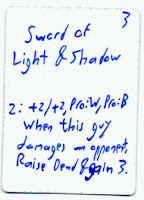 3
Sword of
Light & Shadow
2: +2/+2, Pro:W, Pro:B
When this guy
damages an opponent,
Raise Dead & gain 3.